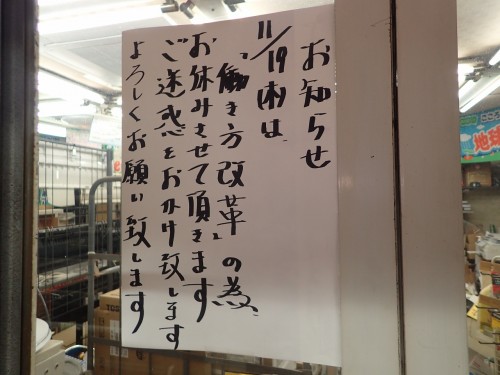 お知らせ
11/19(木)は、
「働き方改革」の為、
お休みさせて頂きます
ご迷惑をおかけ致します
よろしくお願い致します
地球